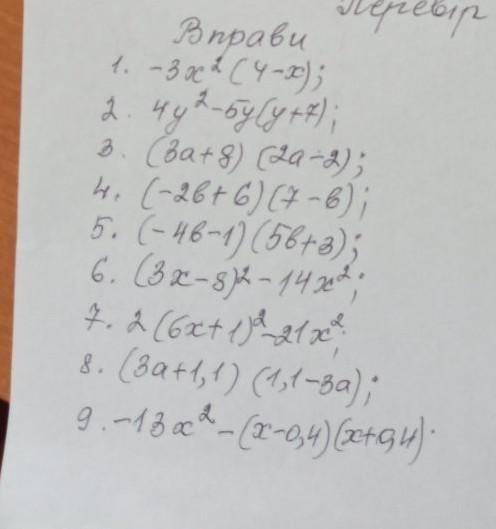 Перевір
Вправи
1. -3x² (4-x);
2. 4y²-5y(y+7);
3. (3a+8) (2a-2);
4. (-2b+6)(7-b);
5. (-4b-1)(5b+3);
6. (3x-8)²-14x²;
7. 2(6x+1)²-21x²;
8. (3a+1,1) (1,1-3a);
9. -13x²-(x-0,4)(x+0,4).